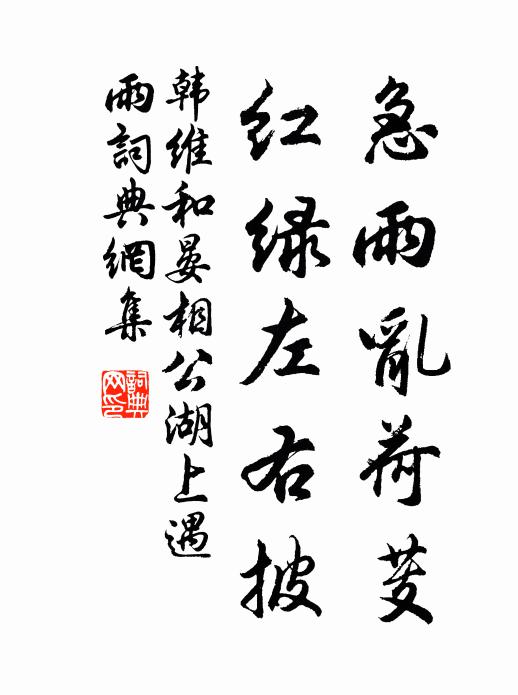 急雨亂荷芰
紅緑左右披
韓維和晏相公湖上遇
雨詞典網集
詞典
网印